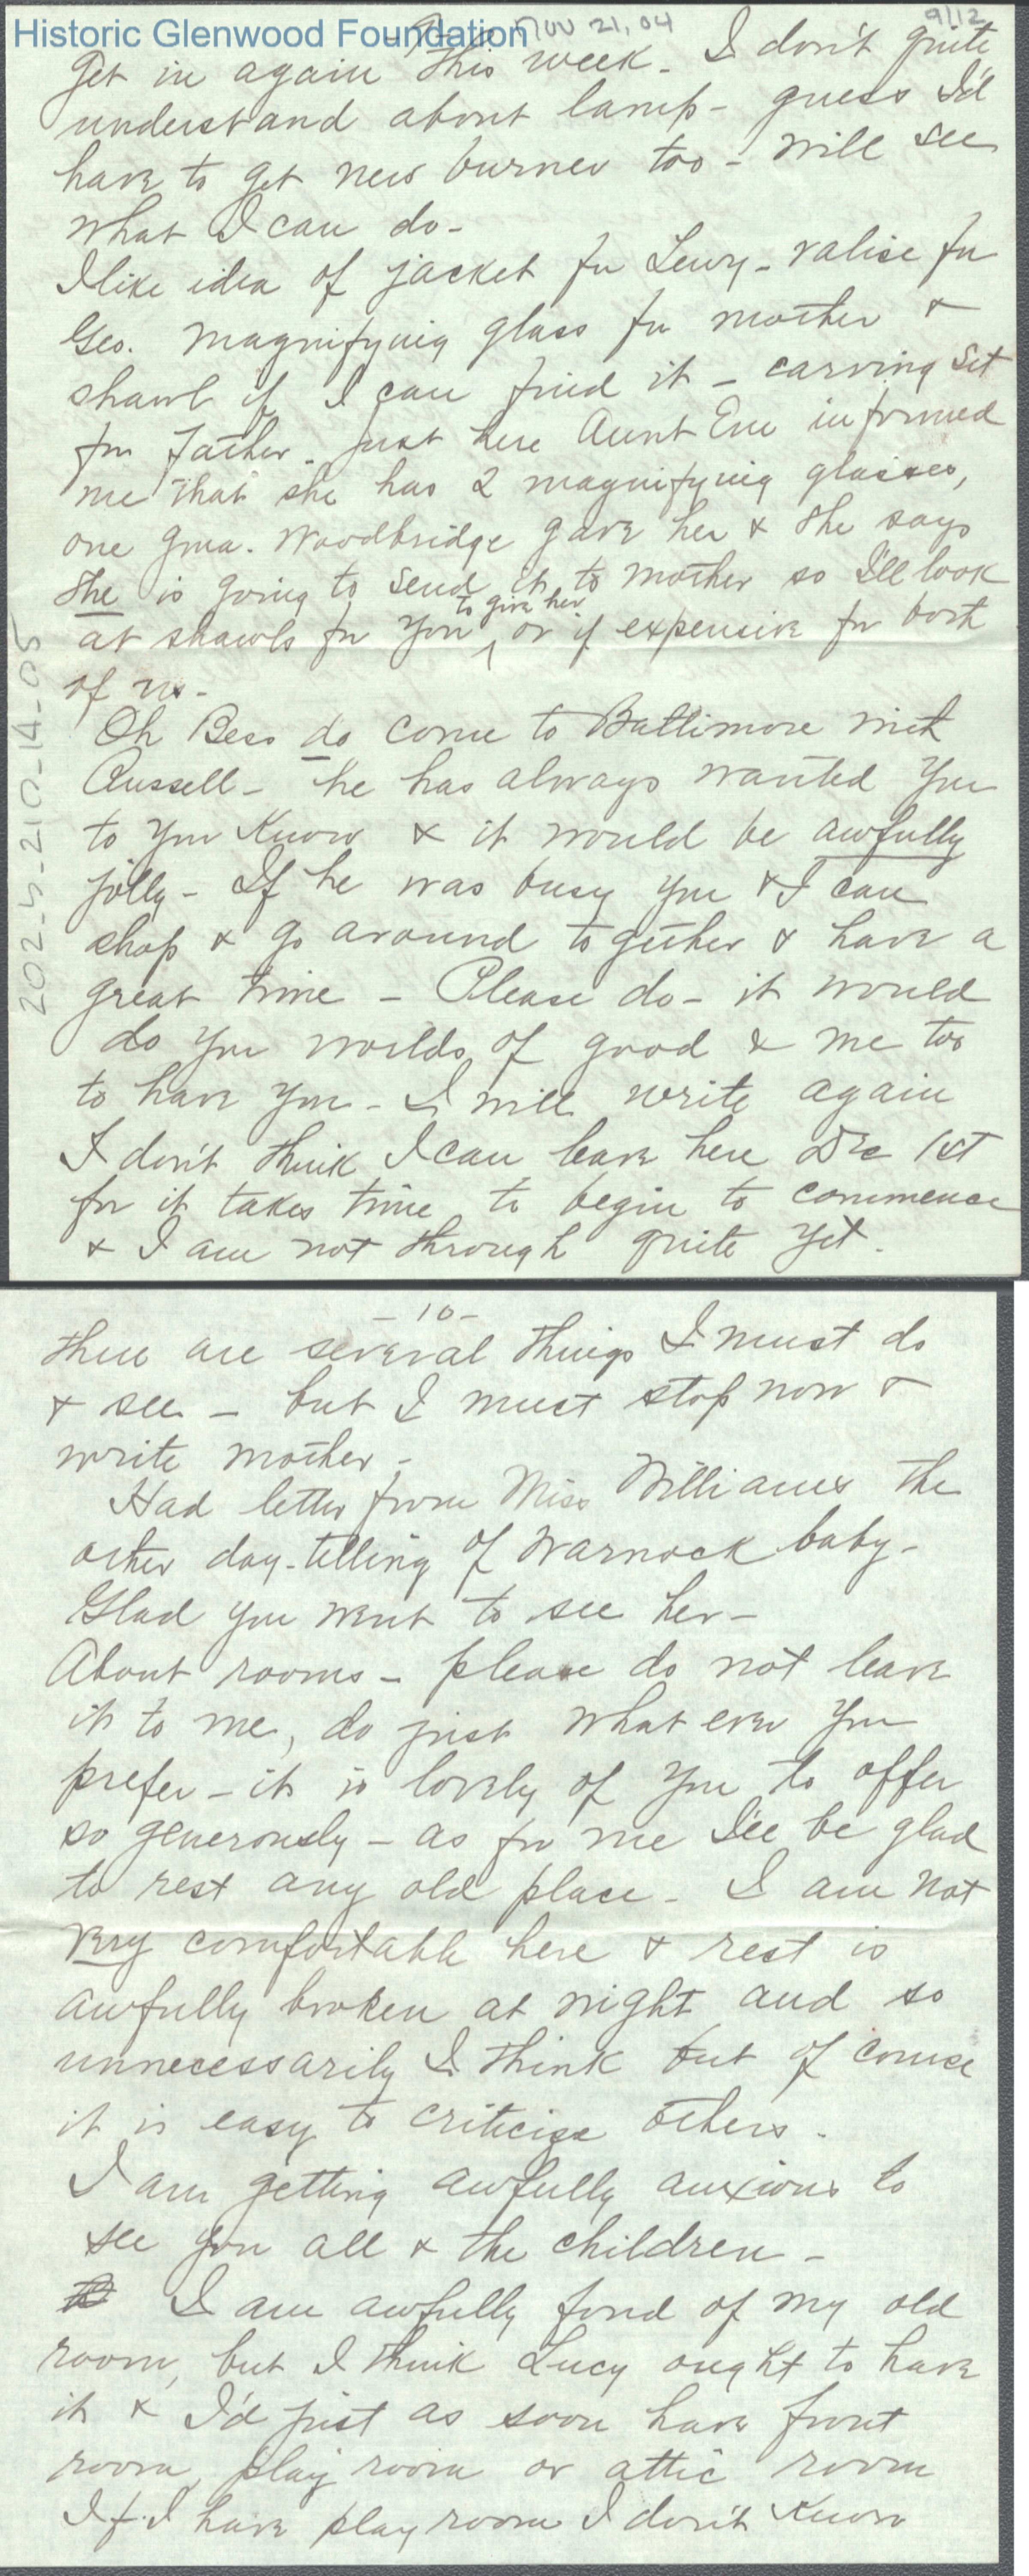 Historic Glenwood Foundation
Nov 21, 04
9/12
get in again this week. I don't quite
understand about lamp - guess I'd
have to get new burner too - will see
what I can do -
I like idea of jacket for Lewy - valise for
Geo. magnifying glass for mother &
shawl if I can find it - carving set
for Father. Just here Aunt Em informed
me that she has 2 magnifying glasses,
one Gma. Woodbridge gave her & she says
she is going to send it to mother so I'll look
to give her
at shawls for you ^ or if expensive for both
of us -
Oh Bess do come to Baltimore with
Russell - he has always wanted you
to you know & it would be awfully
jolly - If he was busy you & I can
shop & go around together & have a
great time - Please do - it would
do you worlds of good & me too
to have you - I will write again
I don't think I can leave here Dec 1st
for it takes time to begin to commence
& I am not through quite yet.
202-4-210-14-05
- 10 -
there are several things I must do
& see - but I must stop now &
write mother -
Had letter from Miss Williams the
other day - telling of Warnock baby -
Glad you went to see her -
About rooms - please do not leave
it to me, do just what ever you
prefer - it is lovely of you to offer
so generously - as for me I'll be glad
to rest any old place - I am not
very comfortable here & rest is
awfully broken at night and so
unnecessarily I think but of course
it is easy to criticise others.
I am getting awfully anxious to
see you all & the children -
I am awfully fond of my old
room, but I think Lucy ought to have
it & I'd just as soon have front
room, play room or attic room
If I have play room I don't know